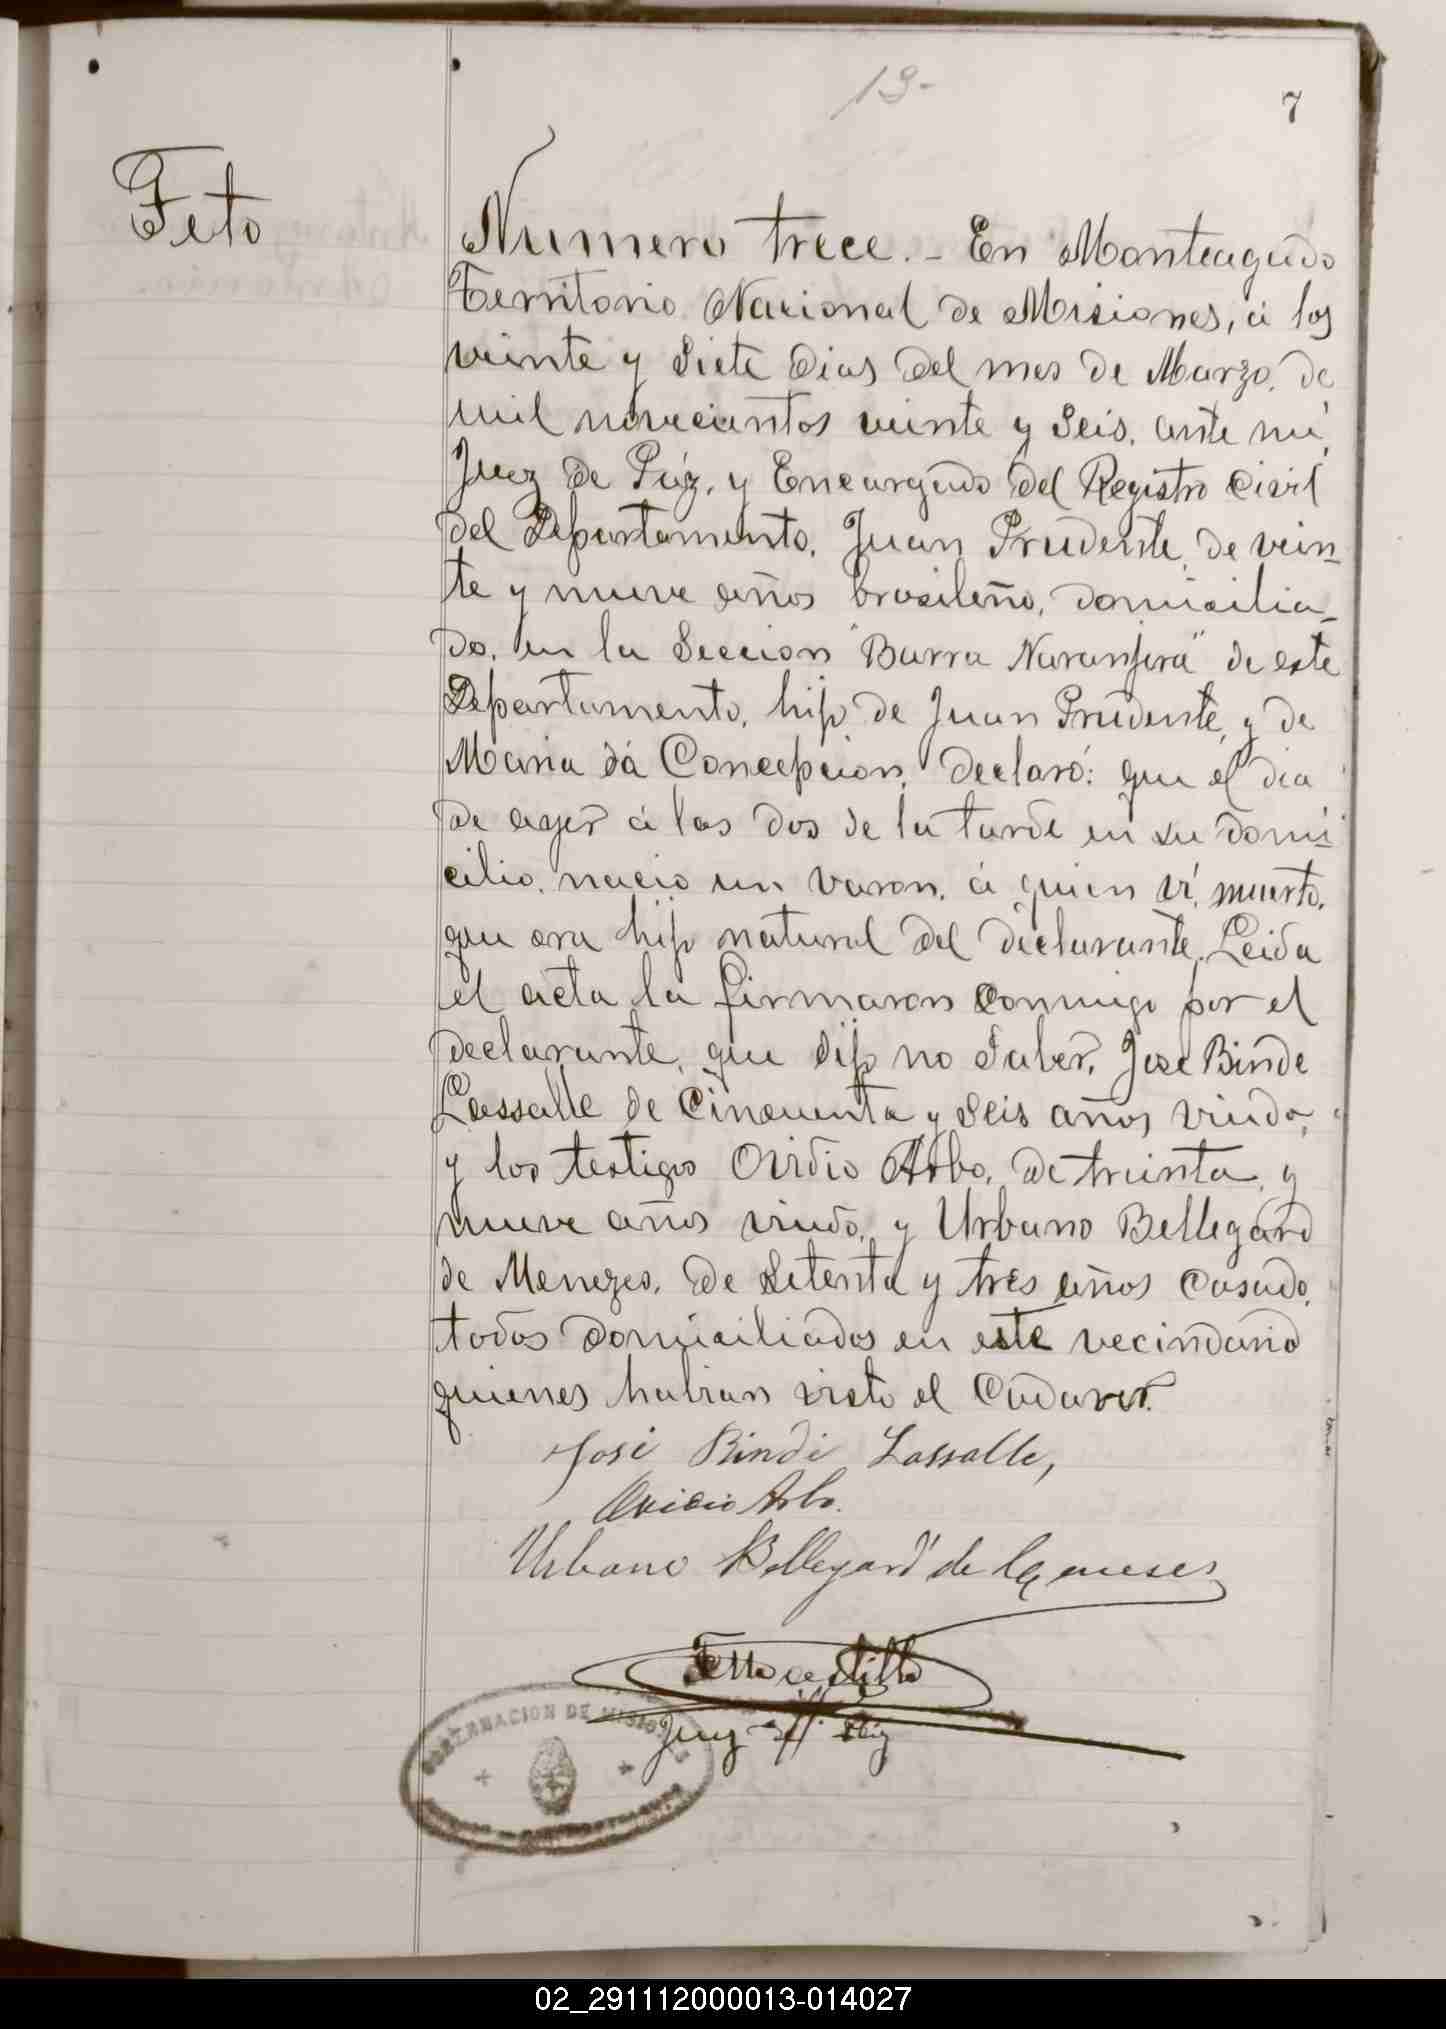 13-
7
Feto
Numero trece.- En Monteagudo
Territorio Nacional de Misiones, á los
veinte y siete dias del mes de Marzo, de
mil novecientos veinte y seis, ante mi,
Juez de Páz, y Encargado del Registro Civil
del Departamento, Juan Prudente, de vein-
te y nueve años brasileño, domicilia-
do, en la Seccion "Barra Naranjera" de este
Departamento, hijo de Juan Prudente, y de
Maria dá Concepcion, declaró: que el dia
de ayer á las dos de la tarde en su domi-
cilio, nació un varon, á quien ví, muerto,
que era hijo natural del declarante. Leida
el acta la firmaron conmigo por el
declarante, que dijo no saber, José Binde
Lassalle de cincuenta y seis años viudo,
y los testigos Ovidio Arbo, de treinta y
nueve años viudo, y Urbano Bellegard
de Menezes, de setenta y tres años casado,
todos domiciliados en este vecindario
quienes habian visto el cadaver.
José Binde Lassalle,
Ovidio Arbo.
Urbano Bellegard de
Juez de Paz
GOBERNACION DE MISIONES
02_291112000013-014027